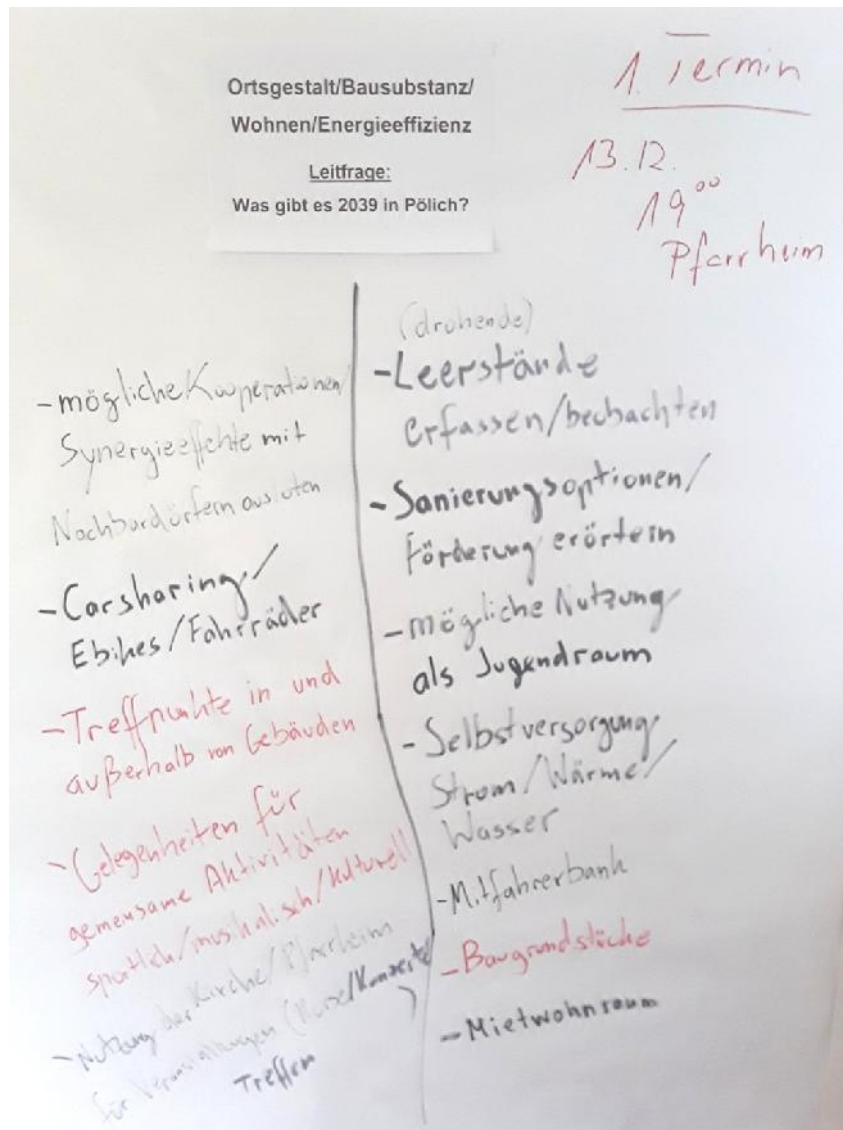 Ortsgestalt/Bausubstanz/
Wohnen/Energieeffizienz
Leitfrage:
Was gibt es 2039 in Pölich?
1. Termin
13.12.
19⁰⁰
Pfarrheim
- mögliche Kooperationen/
Synergieeffekte mit
Nachbardörfern ausloten
- Carsharing/
Ebikes/Fahrräder
- Treffpunkte in und
außerhalb von Gebäuden
- Gelegenheiten für
gemeinsame Aktivitäten
sportlich/musikalisch/kulturell
- Nutzung der Kirche/Pfarrheim
für Veranstaltungen (Kurse/Konzerte/
Treffen)
(drohende)
- Leerstände
erfassen/beobachten
- Sanierungsoptionen/
Förderung erörtern
- mögliche Nutzung
als Jugendraum
- Selbstversorgung
Strom/Wärme/
Wasser
- Mitfahrerbank
- Baugrundstücke
- Mietwohnraum